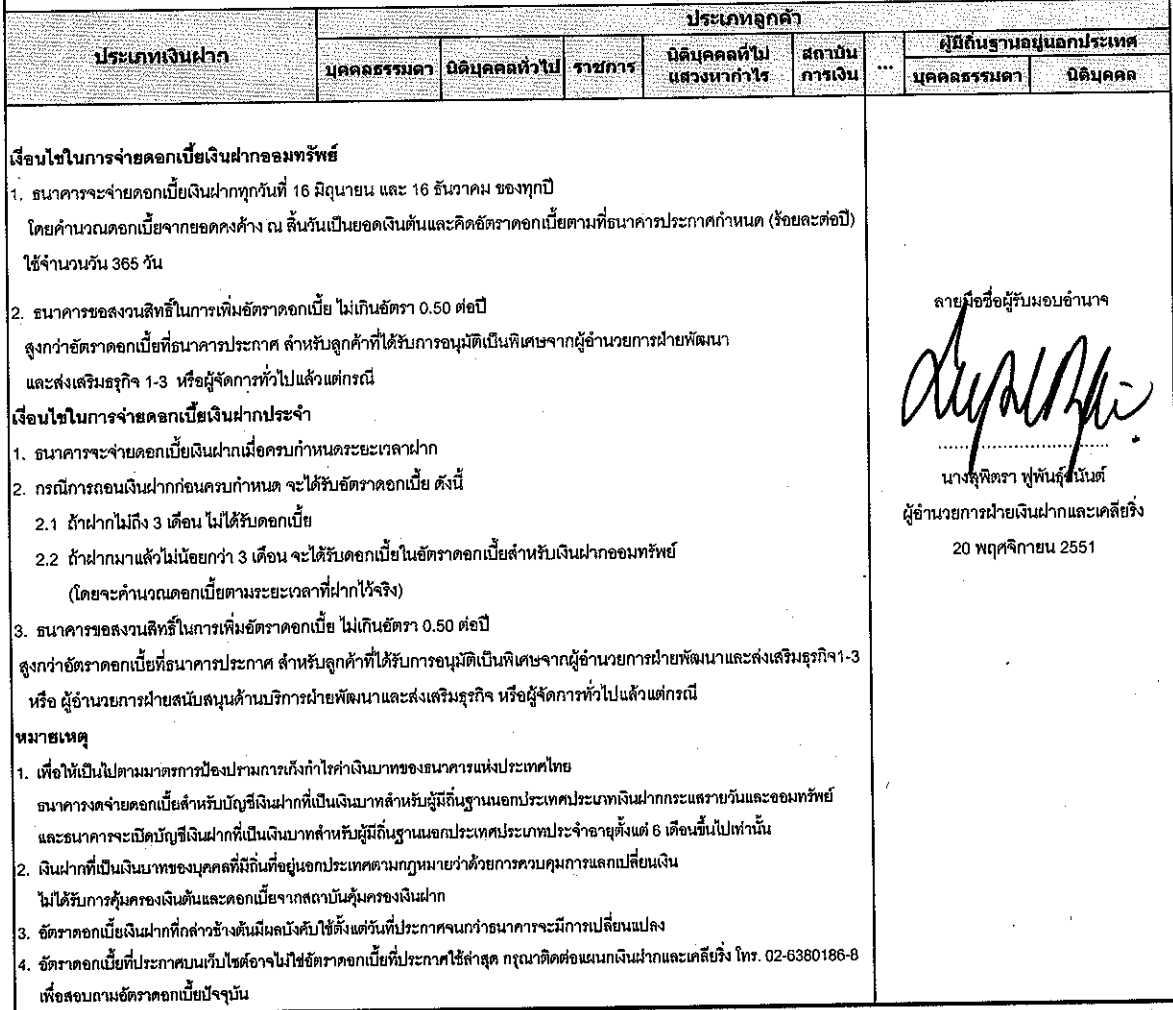 ประเภทเงินฝาก
ประเภทลูกค้า
บุคคลธรรมดา
นิติบุคคลทั่วไป
ราชการ
นิติบุคคลที่ไม่
แสวงหากำไร
สถาบัน
การเงิน
...
ผู้มีถิ่นฐานอยู่นอกประเทศ
บุคคลธรรมดา
นิติบุคคล
เงื่อนไขในการจ่ายดอกเบี้ยเงินฝากออมทรัพย์
1. ธนาคารจะจ่ายดอกเบี้ยเงินฝากทุกวันที่ 16 มิถุนายน และ 16 ธันวาคม ของทุกปี
โดยคำนวณดอกเบี้ยจากยอดคงค้าง ณ สิ้นวันเป็นยอดเงินต้นและคิดอัตราดอกเบี้ยตามที่ธนาคารประกาศกำหนด (ร้อยละต่อปี)
ใช้จำนวนวัน 365 วัน
2. ธนาคารขอสงวนสิทธิ์ในการเพิ่มอัตราดอกเบี้ย ไม่เกินอัตรา 0.50 ต่อปี
สูงกว่าอัตราดอกเบี้ยที่ธนาคารประกาศ สำหรับลูกค้าที่ได้รับการอนุมัติเป็นพิเศษจากผู้อำนวยการฝ่ายพัฒนา
และส่งเสริมธุรกิจ 1-3 หรือผู้จัดการทั่วไปแล้วแต่กรณี
เงื่อนไขในการจ่ายดอกเบี้ยเงินฝากประจำ
1. ธนาคารจะจ่ายดอกเบี้ยเงินฝากเมื่อครบกำหนดระยะเวลาฝาก
2. กรณีการถอนเงินฝากก่อนครบกำหนด จะได้รับอัตราดอกเบี้ย ดังนี้
2.1 ถ้าฝากไม่ถึง 3 เดือน ไม่ได้รับดอกเบี้ย
2.2 ถ้าฝากมาแล้วไม่น้อยกว่า 3 เดือน จะได้รับดอกเบี้ยในอัตราดอกเบี้ยสำหรับเงินฝากออมทรัพย์
(โดยจะคำนวณดอกเบี้ยตามระยะเวลาที่ฝากไว้จริง)
3. ธนาคารขอสงวนสิทธิ์ในการเพิ่มอัตราดอกเบี้ย ไม่เกินอัตรา 0.50 ต่อปี
สูงกว่าอัตราดอกเบี้ยที่ธนาคารประกาศ สำหรับลูกค้าที่ได้รับการอนุมัติเป็นพิเศษจากผู้อำนวยการฝ่ายพัฒนาและส่งเสริมธุรกิจ1-3
หรือ ผู้อำนวยการฝ่ายสนับสนุนด้านบริการฝ่ายพัฒนาและส่งเสริมธุรกิจ หรือผู้จัดการทั่วไปแล้วแต่กรณี
หมายเหตุ
1. เพื่อให้เป็นไปตามมาตรการป้องปรามการเก็งกำไรค่าเงินบาทของธนาคารแห่งประเทศไทย
ธนาคารงดจ่ายดอกเบี้ยสำหรับบัญชีเงินฝากที่เป็นเงินบาทสำหรับผู้มีถิ่นฐานนอกประเทศประเภทเงินฝากกระแสรายวันและออมทรัพย์
และธนาคารจะเปิดบัญชีเงินฝากที่เป็นเงินบาทสำหรับผู้มีถิ่นฐานนอกประเทศประเภทประจำอายุตั้งแต่ 6 เดือนขึ้นไปเท่านั้น
2. เงินฝากที่เป็นเงินบาทของบุคคลที่มีถิ่นที่อยู่นอกประเทศตามกฎหมายว่าด้วยการควบคุมการแลกเปลี่ยนเงิน
ไม่ได้รับการคุ้มครองเงินต้นและดอกเบี้ยจากสถาบันคุ้มครองเงินฝาก
3. อัตราดอกเบี้ยเงินฝากที่กล่าวข้างต้นมีผลบังคับใช้ตั้งแต่วันที่ประกาศจนกว่าธนาคารจะมีการเปลี่ยนแปลง
4. อัตราดอกเบี้ยที่ประกาศบนเว็บไซต์อาจไม่ใช่อัตราดอกเบี้ยที่ประกาศใช้ล่าสุด กรุณาติดต่อแผนกเงินฝากและเคลียริ่ง โทร. 02-6380186-8
เพื่อสอบถามอัตราดอกเบี้ยปัจจุบัน
ลายมือชื่อผู้รับมอบอำนาจ
นางสุพิตรา ฟูพันธุ์อนันต์
ผู้อำนวยการฝ่ายเงินฝากและเคลียริ่ง
20 พฤศจิกายน 2551